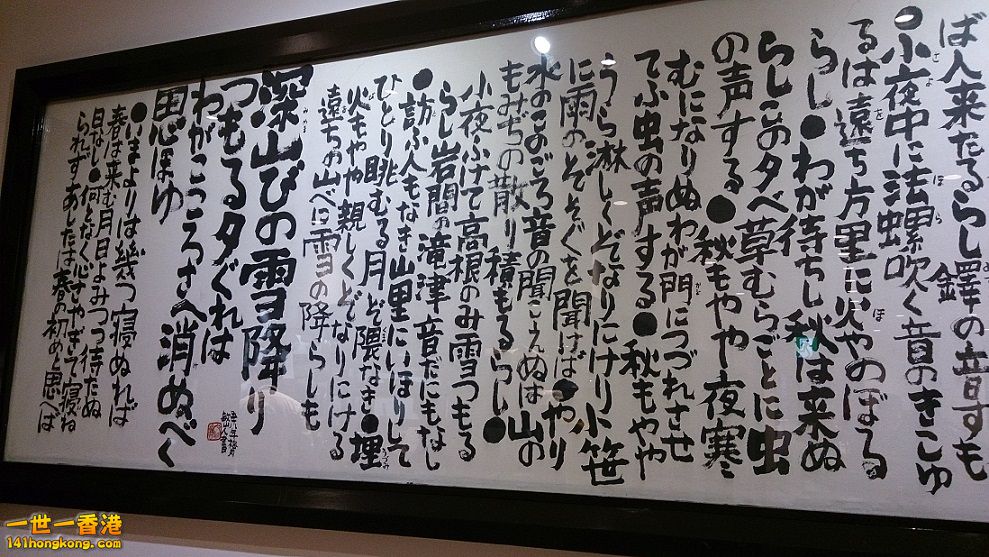 ば人来たるらし鐸の音すも
●小夜中に法螺吹く音のきこゆ
るは遠ち方里に火やのぼる
らし●わが待ちし秋は来ぬ
らしこの夕べ草むらごとに虫
の声する●秋もやや夜寒
むになりぬわが門につづれさせ
てふ虫の声する●秋もやや
うら淋しくぞなりにけり小笹
に雨のそそぐを聞けば●やり
水のこのごろ音の聞こえぬは山の
もみぢの散り積もるらし●
小夜ふけて高根のみ雪つもる
らし岩間の滝津音だにもなし
●訪ふ人もなき山里にいほりして
ひとり眺むる月ぞ隈なき●埋
火もやや親しくぞなりにける
遠ちの山べに雪の降らしも
深山びの雪降り
つもる夕ぐれは
わがこころさへ消ぬべく
思ほゆ
●いまよりは幾つ寝ぬれば
春は来む月日よみつつ待たぬ
日なし●何となく心さやぎて寝ね
られずあしたは春の初めと思へば
一世一香港
141hongkong.com